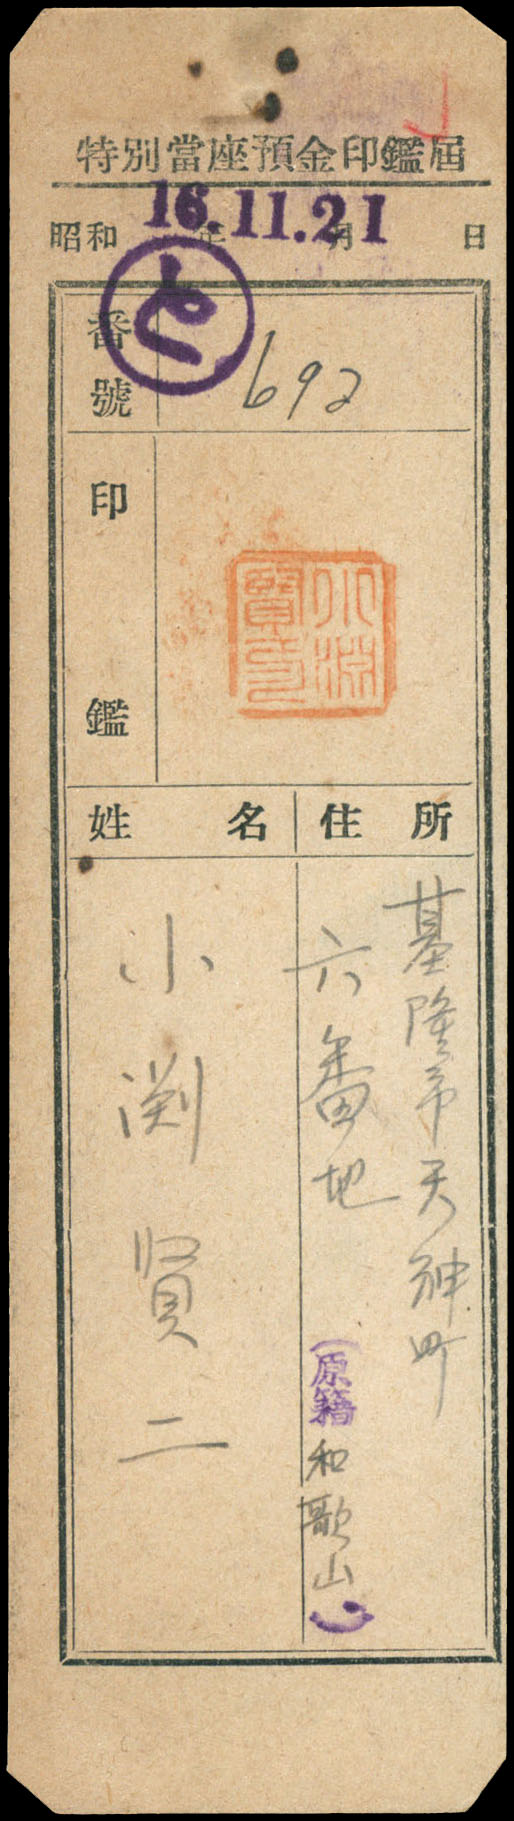 特別當座預金印鑑届
昭和 年 月 日
16.11.21
と
番號
692
印鑑
小淵
賢弐
姓名
住所
基隆市天神町
六番地
(原籍 和歌山)
小渕賢二